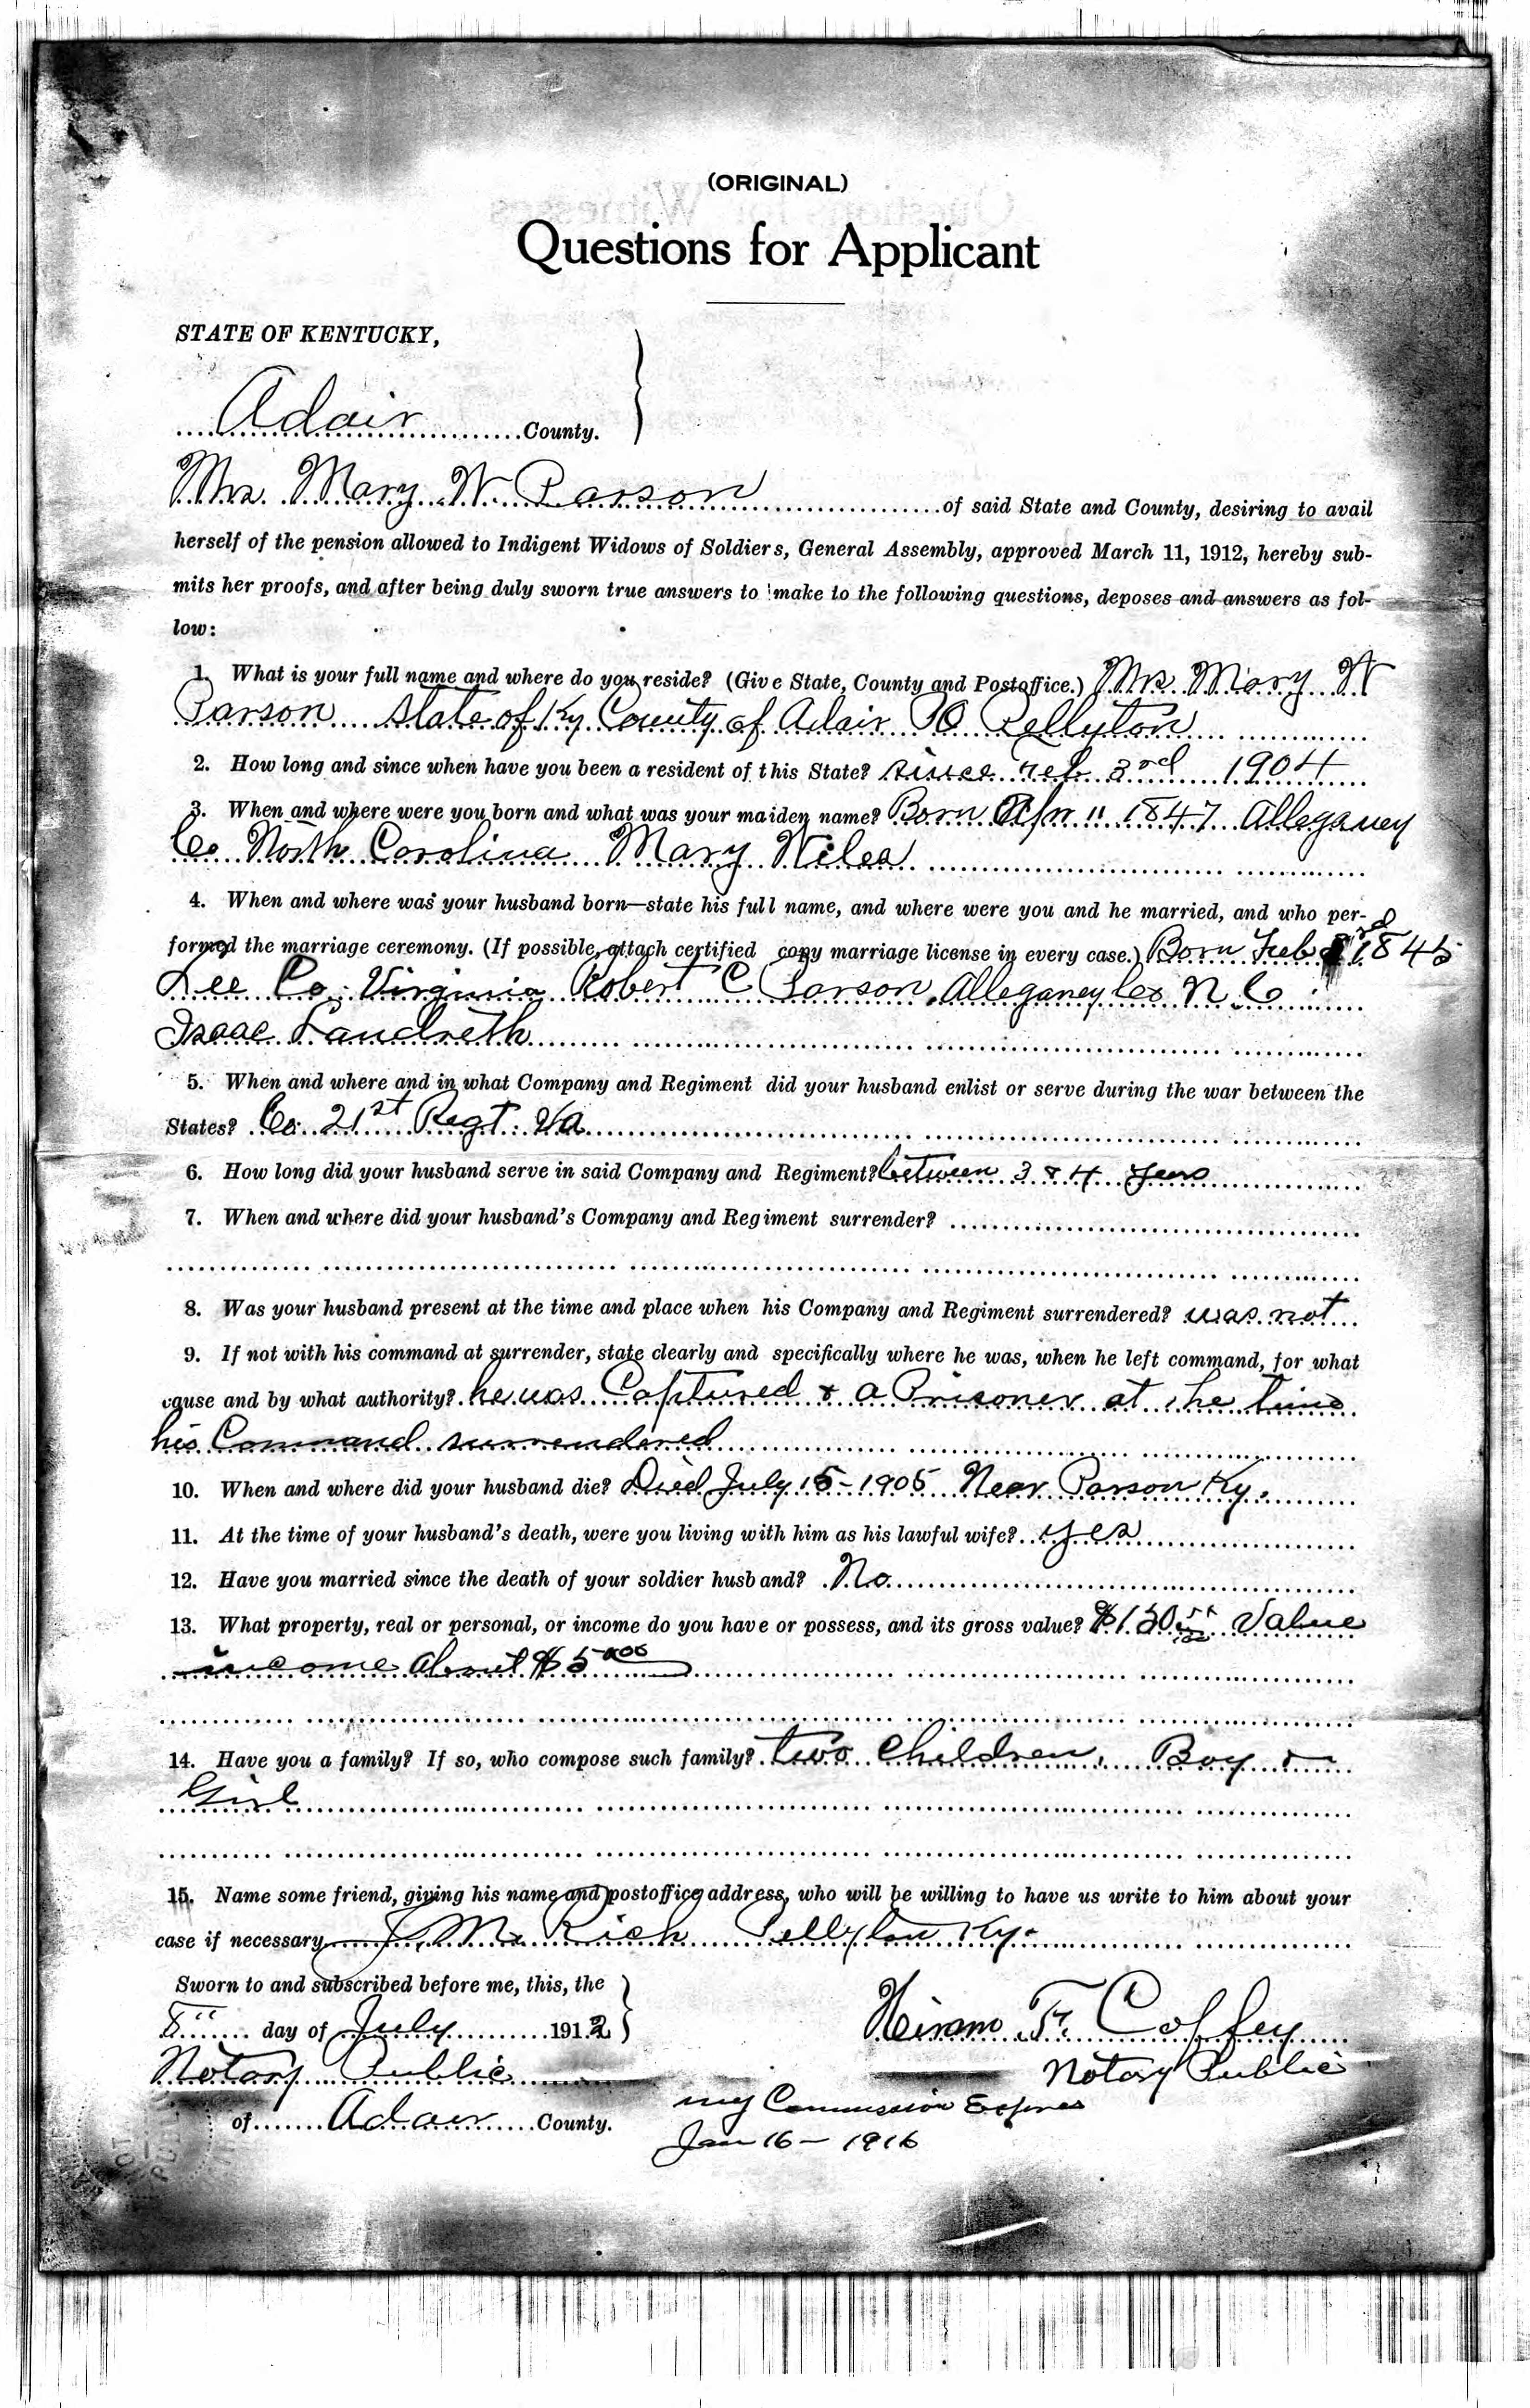 (ORIGINAL)
Questions for Applicant
STATE OF KENTUCKY,
Adair County.
Mrs. Mary W. Parson of said State and County, desiring to avail
herself of the pension allowed to Indigent Widows of Soldiers, General Assembly, approved March 11, 1912, hereby sub-
mits her proofs, and after being duly sworn true answers to make to the following questions, deposes and answers as fol-
low:
1. What is your full name and where do you reside? (Give State, County and Postoffice.) Mrs Mary W
Parson State of Ky County of Adair PO Pellyton
2. How long and since when have you been a resident of this State? since Feb 3rd 1904
3. When and where were you born and what was your maiden name? Born Apr 11 1847 Alleganey
Co North Carolina Mary Wiles
4. When and where was your husband born—state his full name, and where were you and he married, and who per-
formed the marriage ceremony. (If possible, attach certified copy marriage license in every case.) Born Feb 1845
Lee Co. Virginia Robert C Parson, Alleganey Co N. C
Isaac Landreth
5. When and where and in what Company and Regiment did your husband enlist or serve during the war between the
States? Co. 21st Regt. Va
6. How long did your husband serve in said Company and Regiment? between 3 & 4 years
7. When and where did your husband's Company and Regiment surrender?
8. Was your husband present at the time and place when his Company and Regiment surrendered? was not
9. If not with his command at surrender, state clearly and specifically where he was, when he left command, for what
cause and by what authority? he was Captured & a Prisoner at the time
his Command surrendered
10. When and where did your husband die? Died July 15-1905 Near Parson Ky.
11. At the time of your husband's death, were you living with him as his lawful wife? yes
12. Have you married since the death of your soldier husband? No
13. What property, real or personal, or income do you have or possess, and its gross value? Value
income about $5
14. Have you a family? If so, who compose such family? two children, Boy &
Girl
15. Name some friend, giving his name and postoffice address, who will be willing to have us write to him about your
case if necessary J. M. Rich Pellyton Ky.
Sworn to and subscribed before me, this, the
8" day of July 1912
Hiram F. Coffey
Notary Public
Notary Public
of Adair County.
my Commission Expires
Jan 16 - 1916